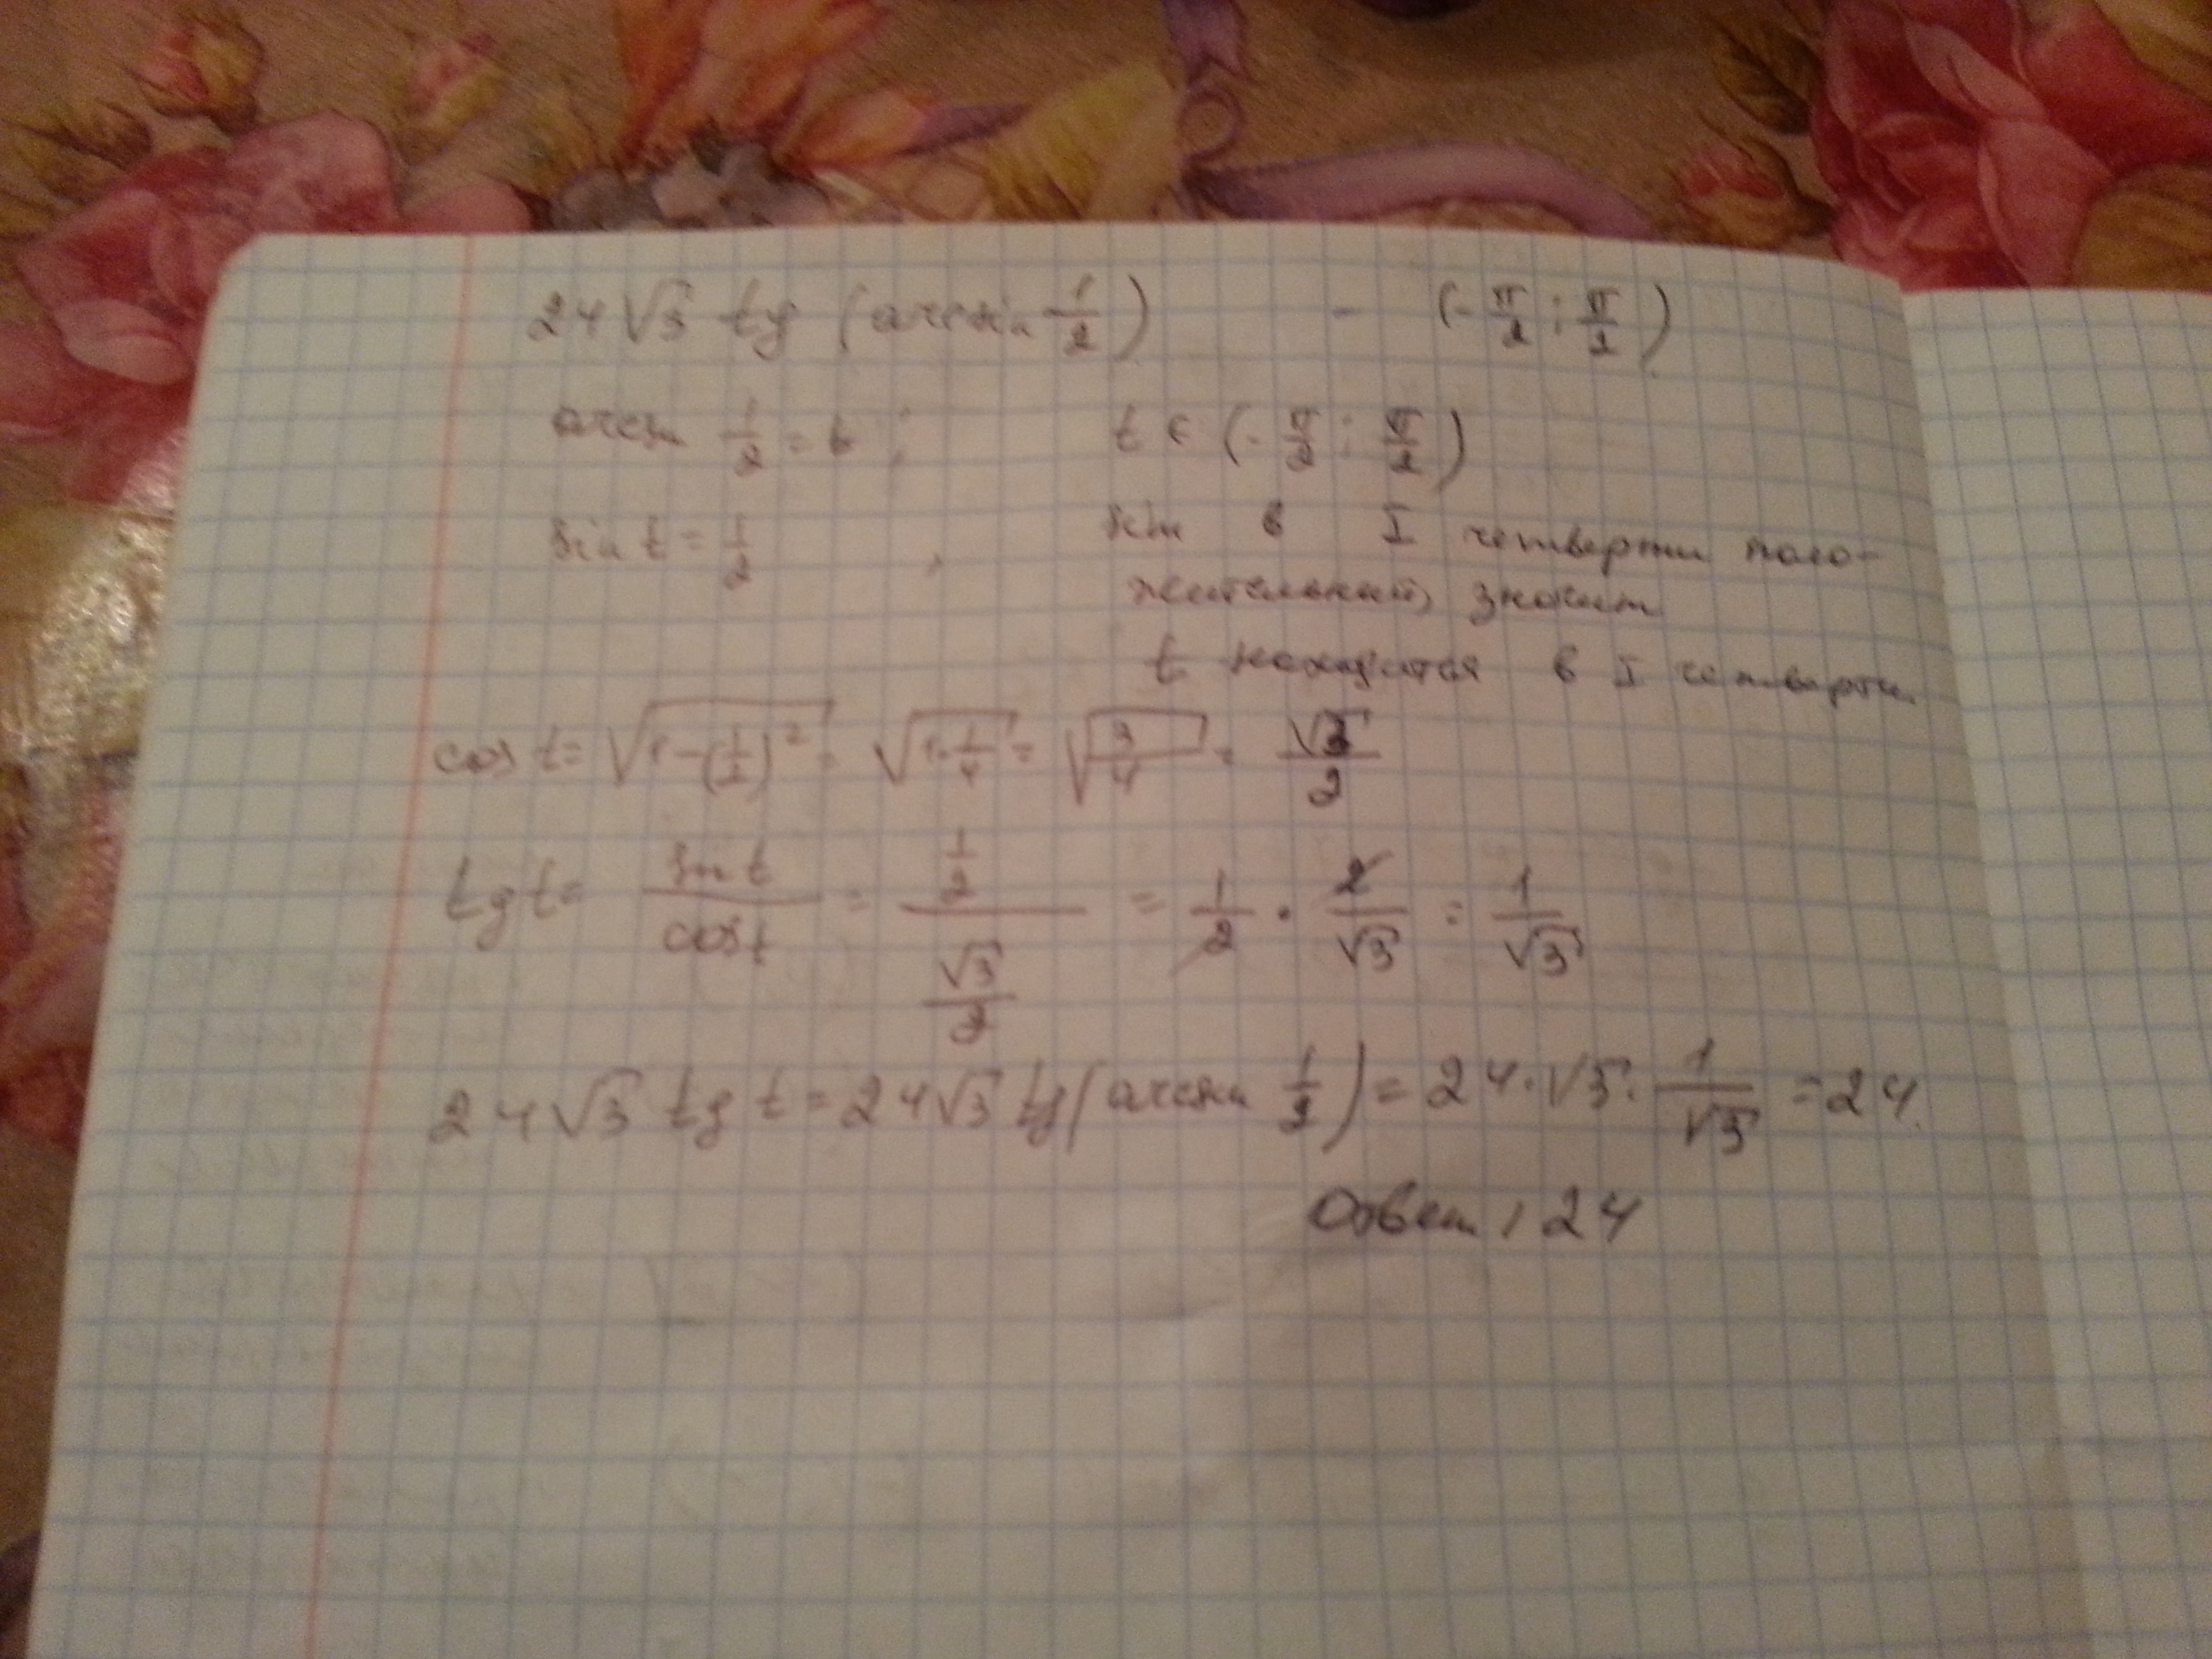 24√3 tg (arcsin 1/2) - (-π/2; π/2)
arcsin 1/2 = t; t ∈ (-π/2; π/2)
sin t = 1/2, sin в I четверти поло-
жительный, значит
t находится в I четверти.
cos t = √(1-(1/2)²) = √(1-1/4) = √(3/4) = √3/2
tg t = sin t / cos t = (1/2)/(√3/2) = 1/2 · 2/√3 = 1/√3
24√3 tg t = 24√3 tg(arcsin 1/2) = 24·√3·1/√3 = 24.
Ответ: 24